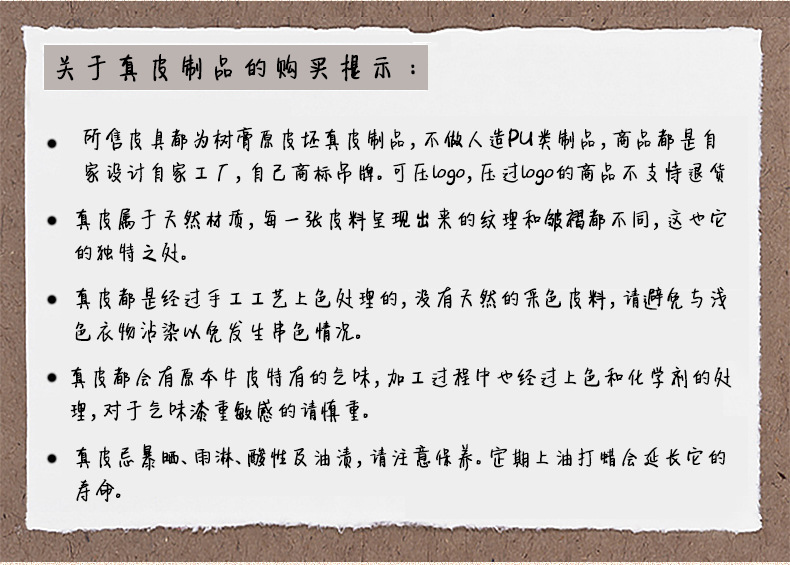 关于真皮制品的购买提示：
所售皮具都为树膏原皮坯真皮制品，不做人造PU类制品，商品都是自
家设计自家工厂，自己商标吊牌。可压logo，压过logo的商品不支持退货
真皮属于天然材质，每一张皮料呈现出来的纹理和皱褶都不同，这也它
的独特之处。
真皮都是经过手工工艺上色处理的，没有天然的采色皮料，请避免与浅
色衣物沾染以免发生串色情况。
真皮都会有原本牛皮特有的气味，加工过程中也经过上色和化学剂的处
理，对于气味漆重敏感的请慎重。
真皮忌暴晒、雨淋、酸性及油渍，请注意保养。定期上油打蜡会延长它的
寿命。